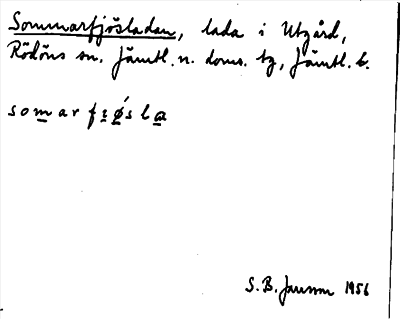 Sommarfjösladan, lada i Utgård,
Rödöns sn. Jämtl. n. doms. tg, Jämtl. l.
somar fi̱ǿsla
S. B. Jansson 1956